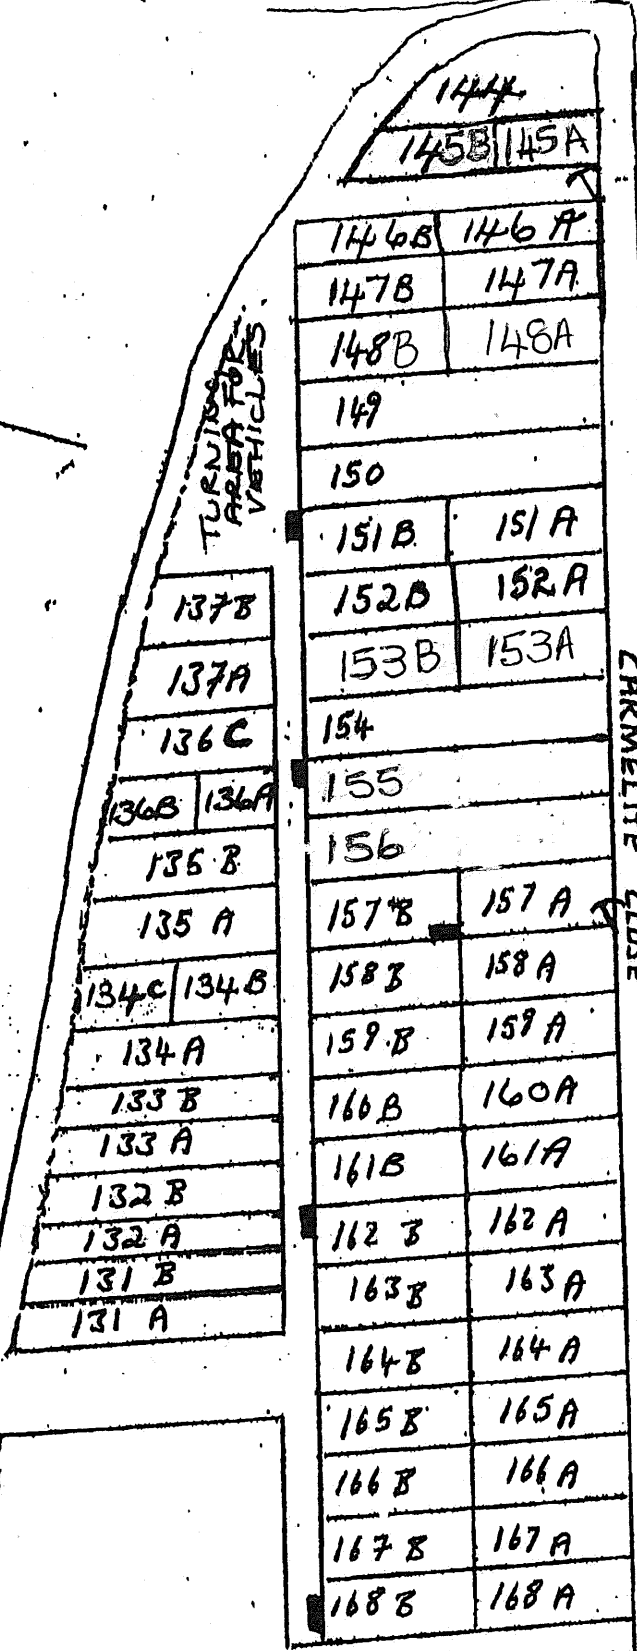 144
145B 145A
146B 146A
147B 147A
148B 148A
149
150
151B 151A
152B 152A
153B 153A
154
155
156
157B 157A
158B 158A
159B 159A
160B 160A
161B 161A
162B 162A
163B 163A
164B 164A
165B 165A
166B 166A
167B 167A
168B 168A
TURNING
AREA FOR
VEHICLES.
137B
137A
136C
136B 136A
135B
135A
134C 134B
134A
133B
133A
132B
132A
131B
131A
CARMELITE CLOSE